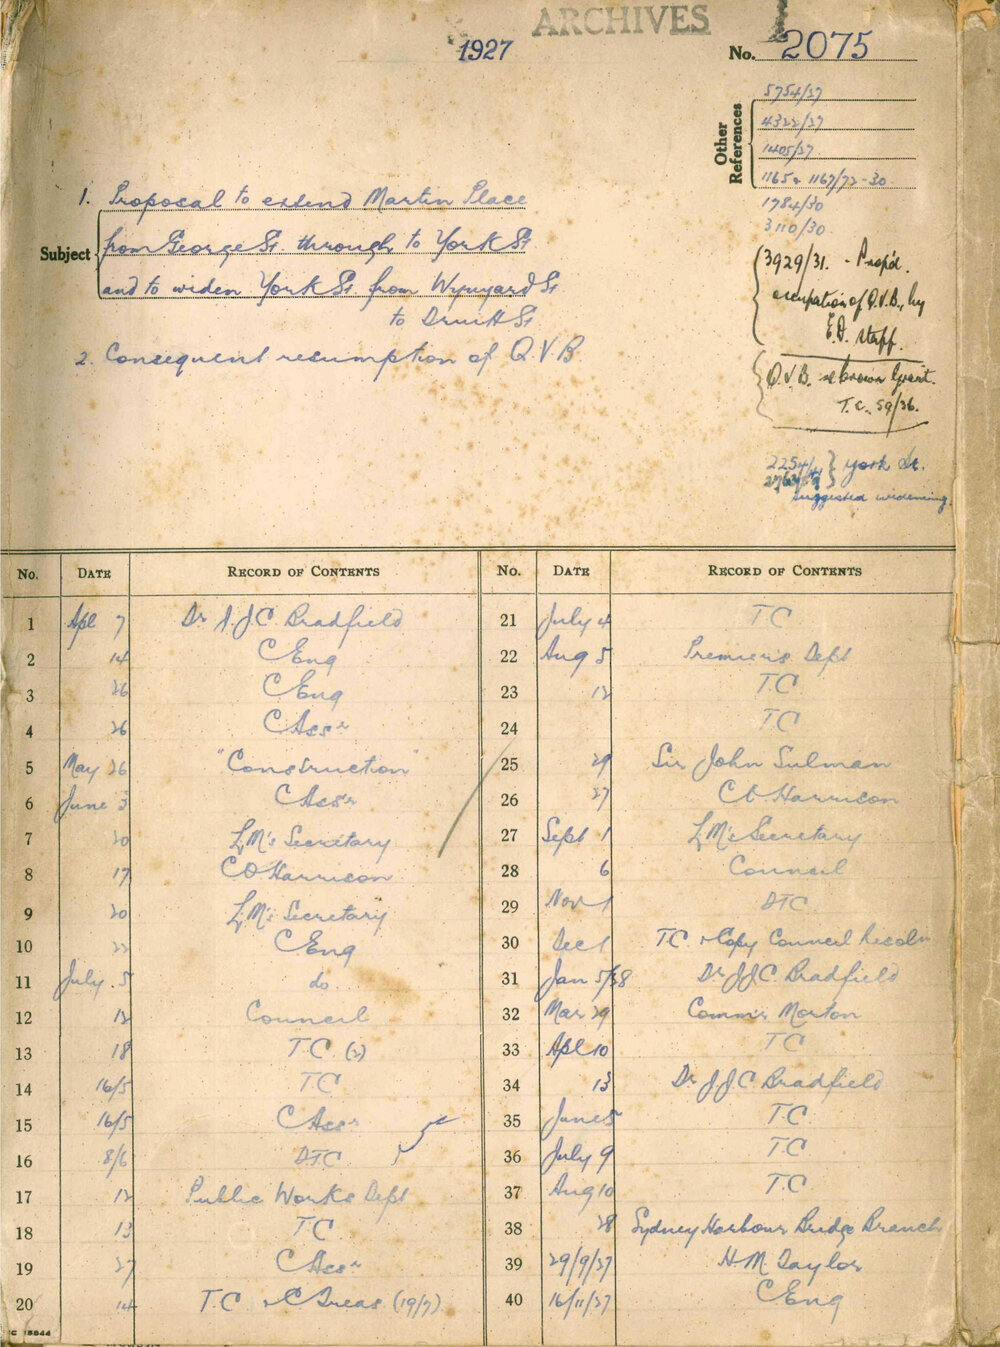 ARCHIVES
1927
No. 2075
Other References
5754/27
4322/27
1405/27
1165 & 1167/72-30
1784/30
3110/30
3929/31. - Prop'd.
occupation of Q.V.B., by
E.D. staff.
Q.V.B. re Crown Grant.
T.C. 59/36.
2254/ } York St.
suggested widening
Subject
1. Proposal to extend Martin Place
from George St. through to York St
and to widen York St. from Wynyard St
to Druitt St
2. Consequent resumption of Q.V.B
No. DATE RECORD OF CONTENTS
1 Apl 7 Dr J.J.C. Bradfield
2 14 C Eng
3 26 C Eng
4 26 C Assr
5 May 26 "Construction"
6 June 3 C Assr
7 20 L.M's Secretary
8 17 C O Harrison
9 20 L.M's Secretary
10 22 C Eng
11 July 5 do.
12 12 Council
13 18 T.C. (2)
14 16/5 T C
15 16/5 C Assr
16 8/6 D T C
17 12 Public Works Dept
18 13 T C
19 27 C Assr
20 14 T.C & C Areas (19/7)
No. DATE RECORD OF CONTENTS
21 July 4 T C
22 Aug 5 Premier's Dept
23 12 T.C
24 T C
25 29 Sir John Sulman
26 27 C O Harrison
27 Sept 1 L.M's Secretary
28 6 Council
29 Nov 1 D T C
30 Dec 1 T C & Copy Council Resoln
31 Jan 5/28 Dr J J C Bradfield
32 Mar 29 Commr Morton
33 Apl 10 T C
34 13 Dr J J C Bradfield
35 June 5 T.C
36 July 9 T.C
37 Aug 10 T.C
38 28 Sydney Harbour Bridge Branch
39 29/9/27 H M Taylor
40 16/11/27 C Eng